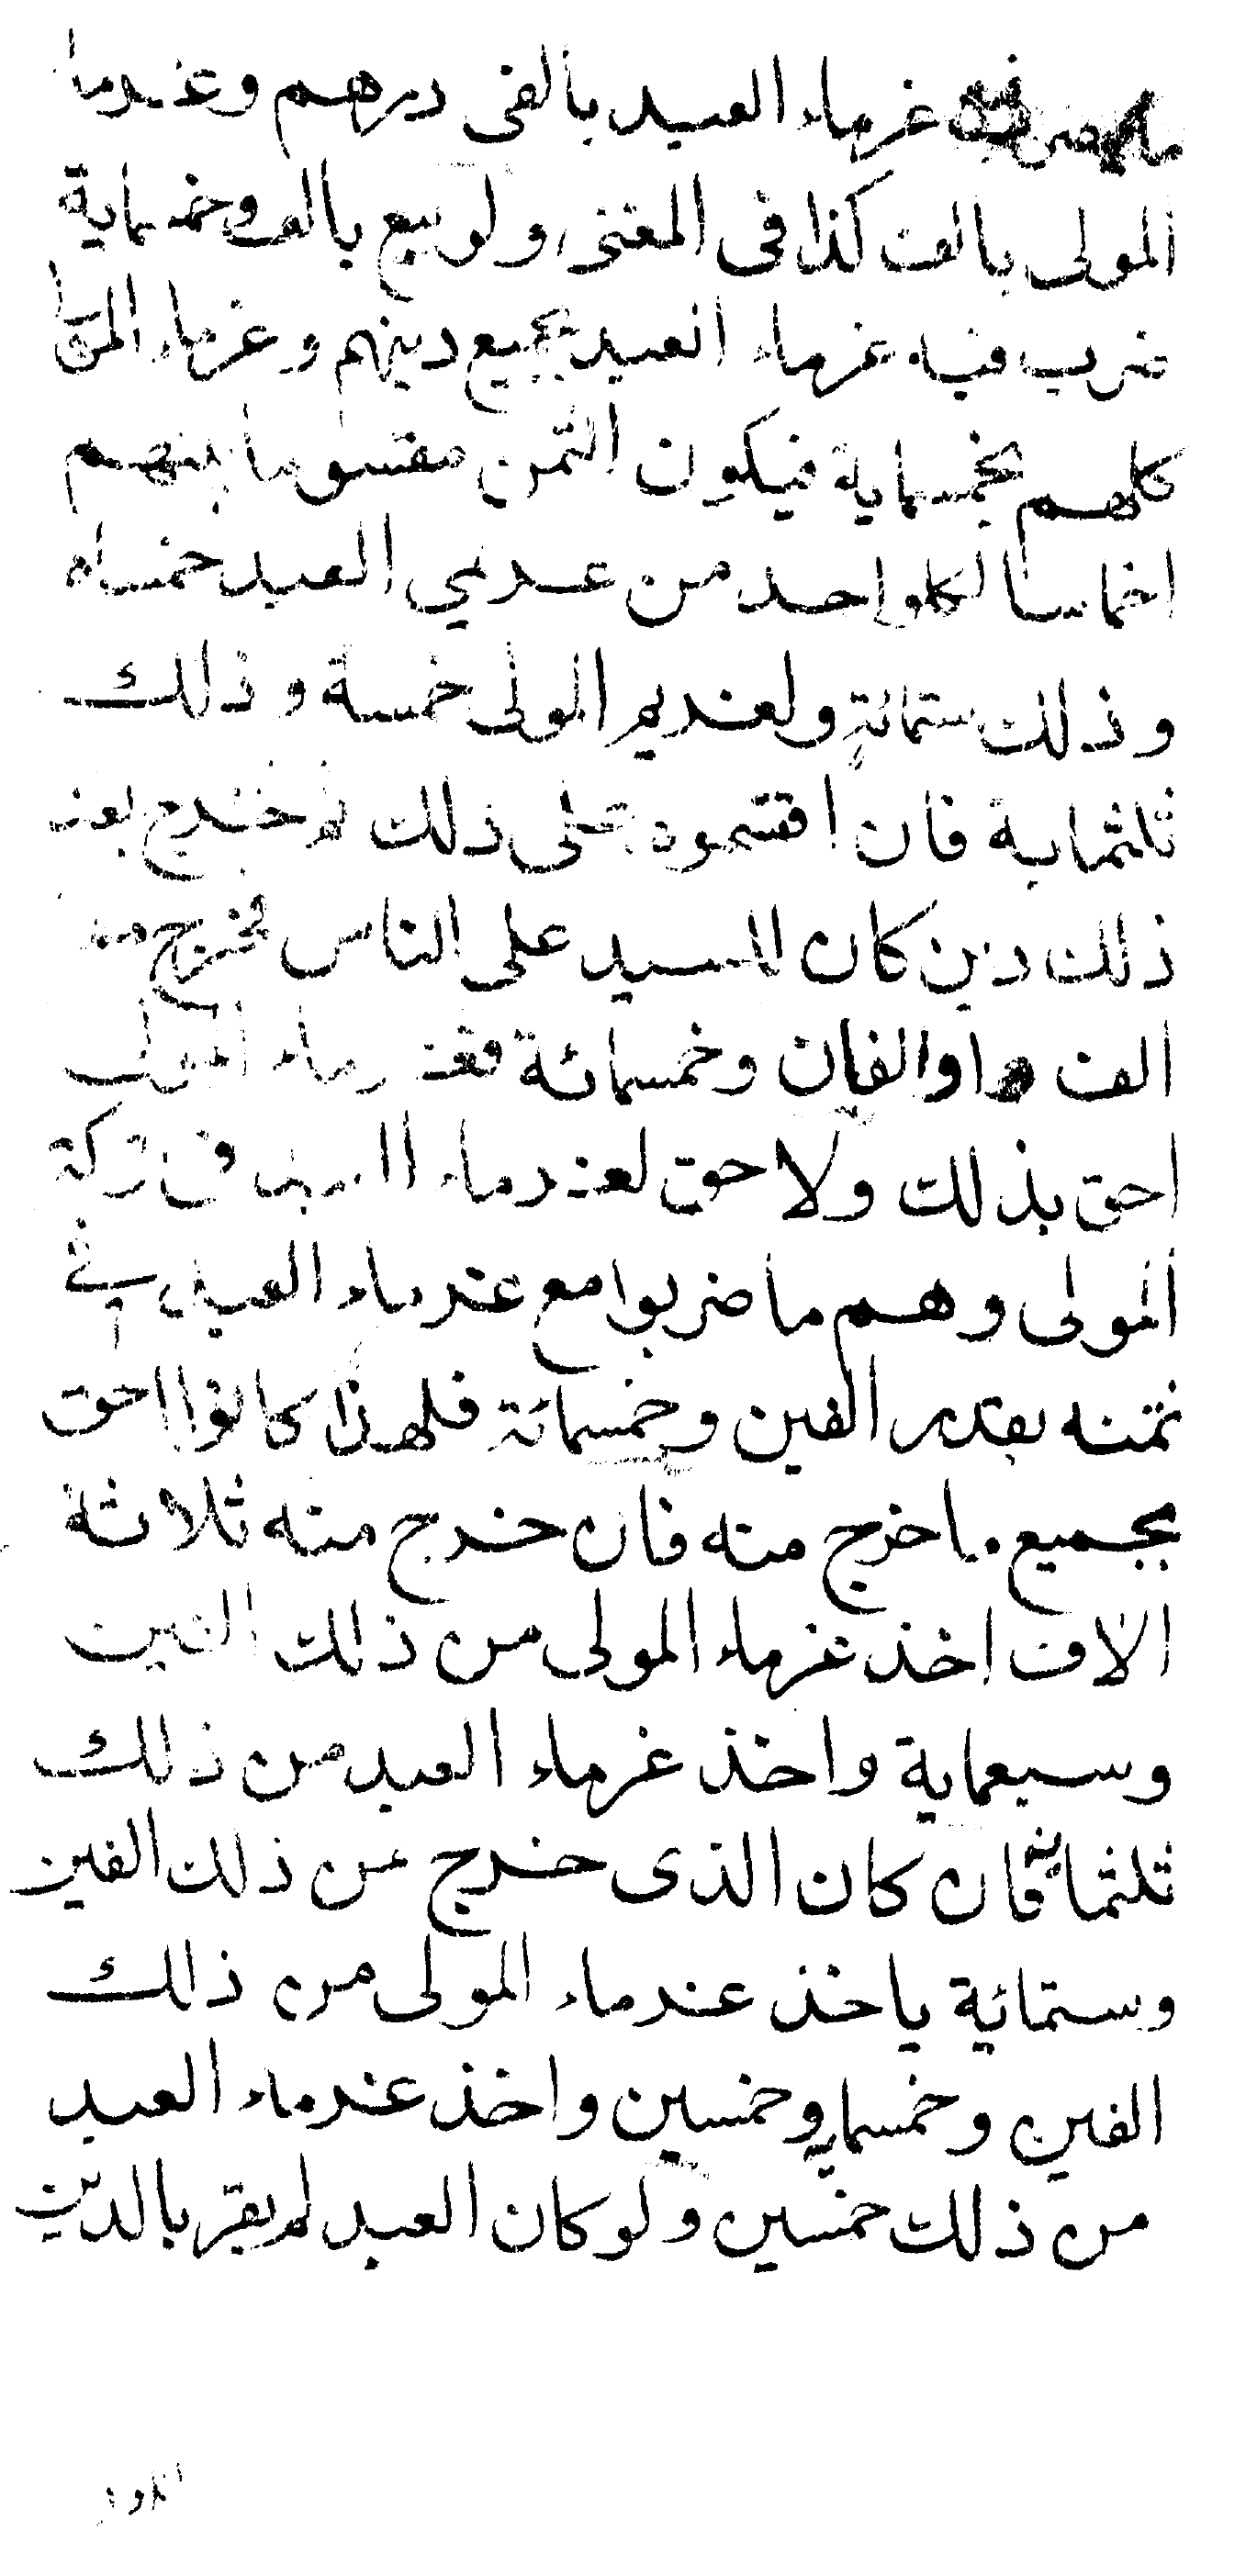 ضرب فيه غرماء العبد بالفى درهم وغرما
المولى بالف كذا فى المغنى ولو بيع بالف وخمسماية
ضرب فيه غرماء العبد بجميع دينهم وغرماء المولى
كلهم بخمسماية فيكون الثمن مقسوما بينهم
اخماسا لكل واحد من غريمي العبد خمساه
وذلك ستمائة ولغريم المولى خمسة وذلك
ثلثماية فان اقتسموه على ذلك ثم خرج بعد
ذلك دين كان للسيد على الناس فخرج منه
الف او الفان وخمسمائة فغرماء المولى
احق بذلك ولا حق لغرماء العبد فى تركة
المولى وهم ما ضربوا مع غرماء العبد في
ثمنه بقدر الفين وخمسمائة فلهذا كانوا احق
بجميع ما خرج منه فان خرج منه ثلاثة
الاف اخذ غرماء المولى من ذلك الفين
وسبعماية واخذ غرماء العبد من ذلك
ثلثماية فان كان الذى خرج من ذلك الفين
وستمائة ياخذ غرماء المولى من ذلك
الفين وخمسماية وخمسين واخذ غرماء العبد
من ذلك خمسين ولو كان العبد لم يقر بالدين